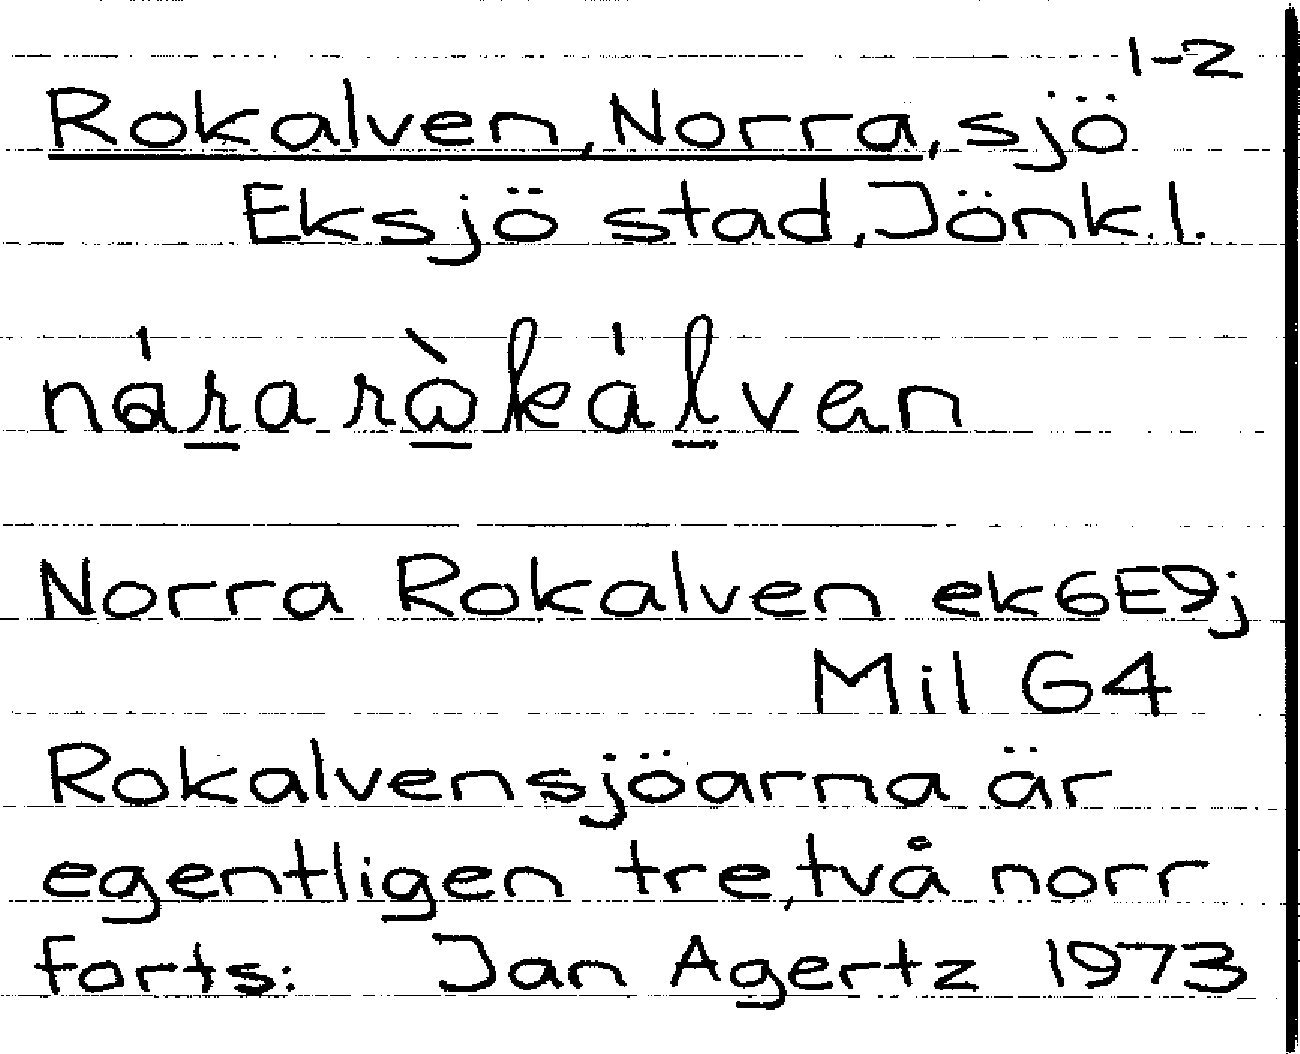 1-2
Rokalven, Norra, sjö
Eksjö stad, Jönk. l.
Norra Rokalven ek6E9j
Mil G4
Rokalvensjöarna är
egentligen tre, två norr
forts: Jan Agertz 1973